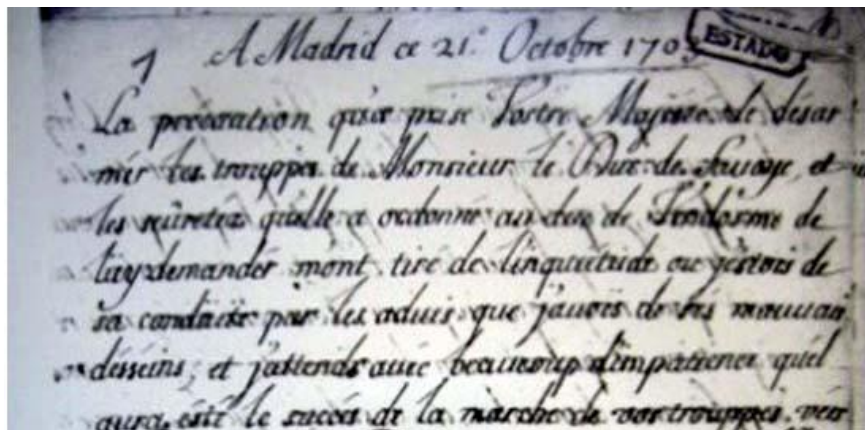 A Madrid ce 21.e Octobre 1703
ESTADO
1
La precaution qu'a prise Vostre Majesté de désar
mér les trouppes de Monsieur le Duc de Savoye, et
les seuretez qu'elle a ordonné au duc de Vendosme de
luy demandér m'ont tiré de l'inquietude ou j'estois de
sa conduite par les aduis que j'auois de ses mauuais
desseins, et j'attends auec beaucoup d'impatience quel
aura esté le succés de la marche de vos trouppes vers